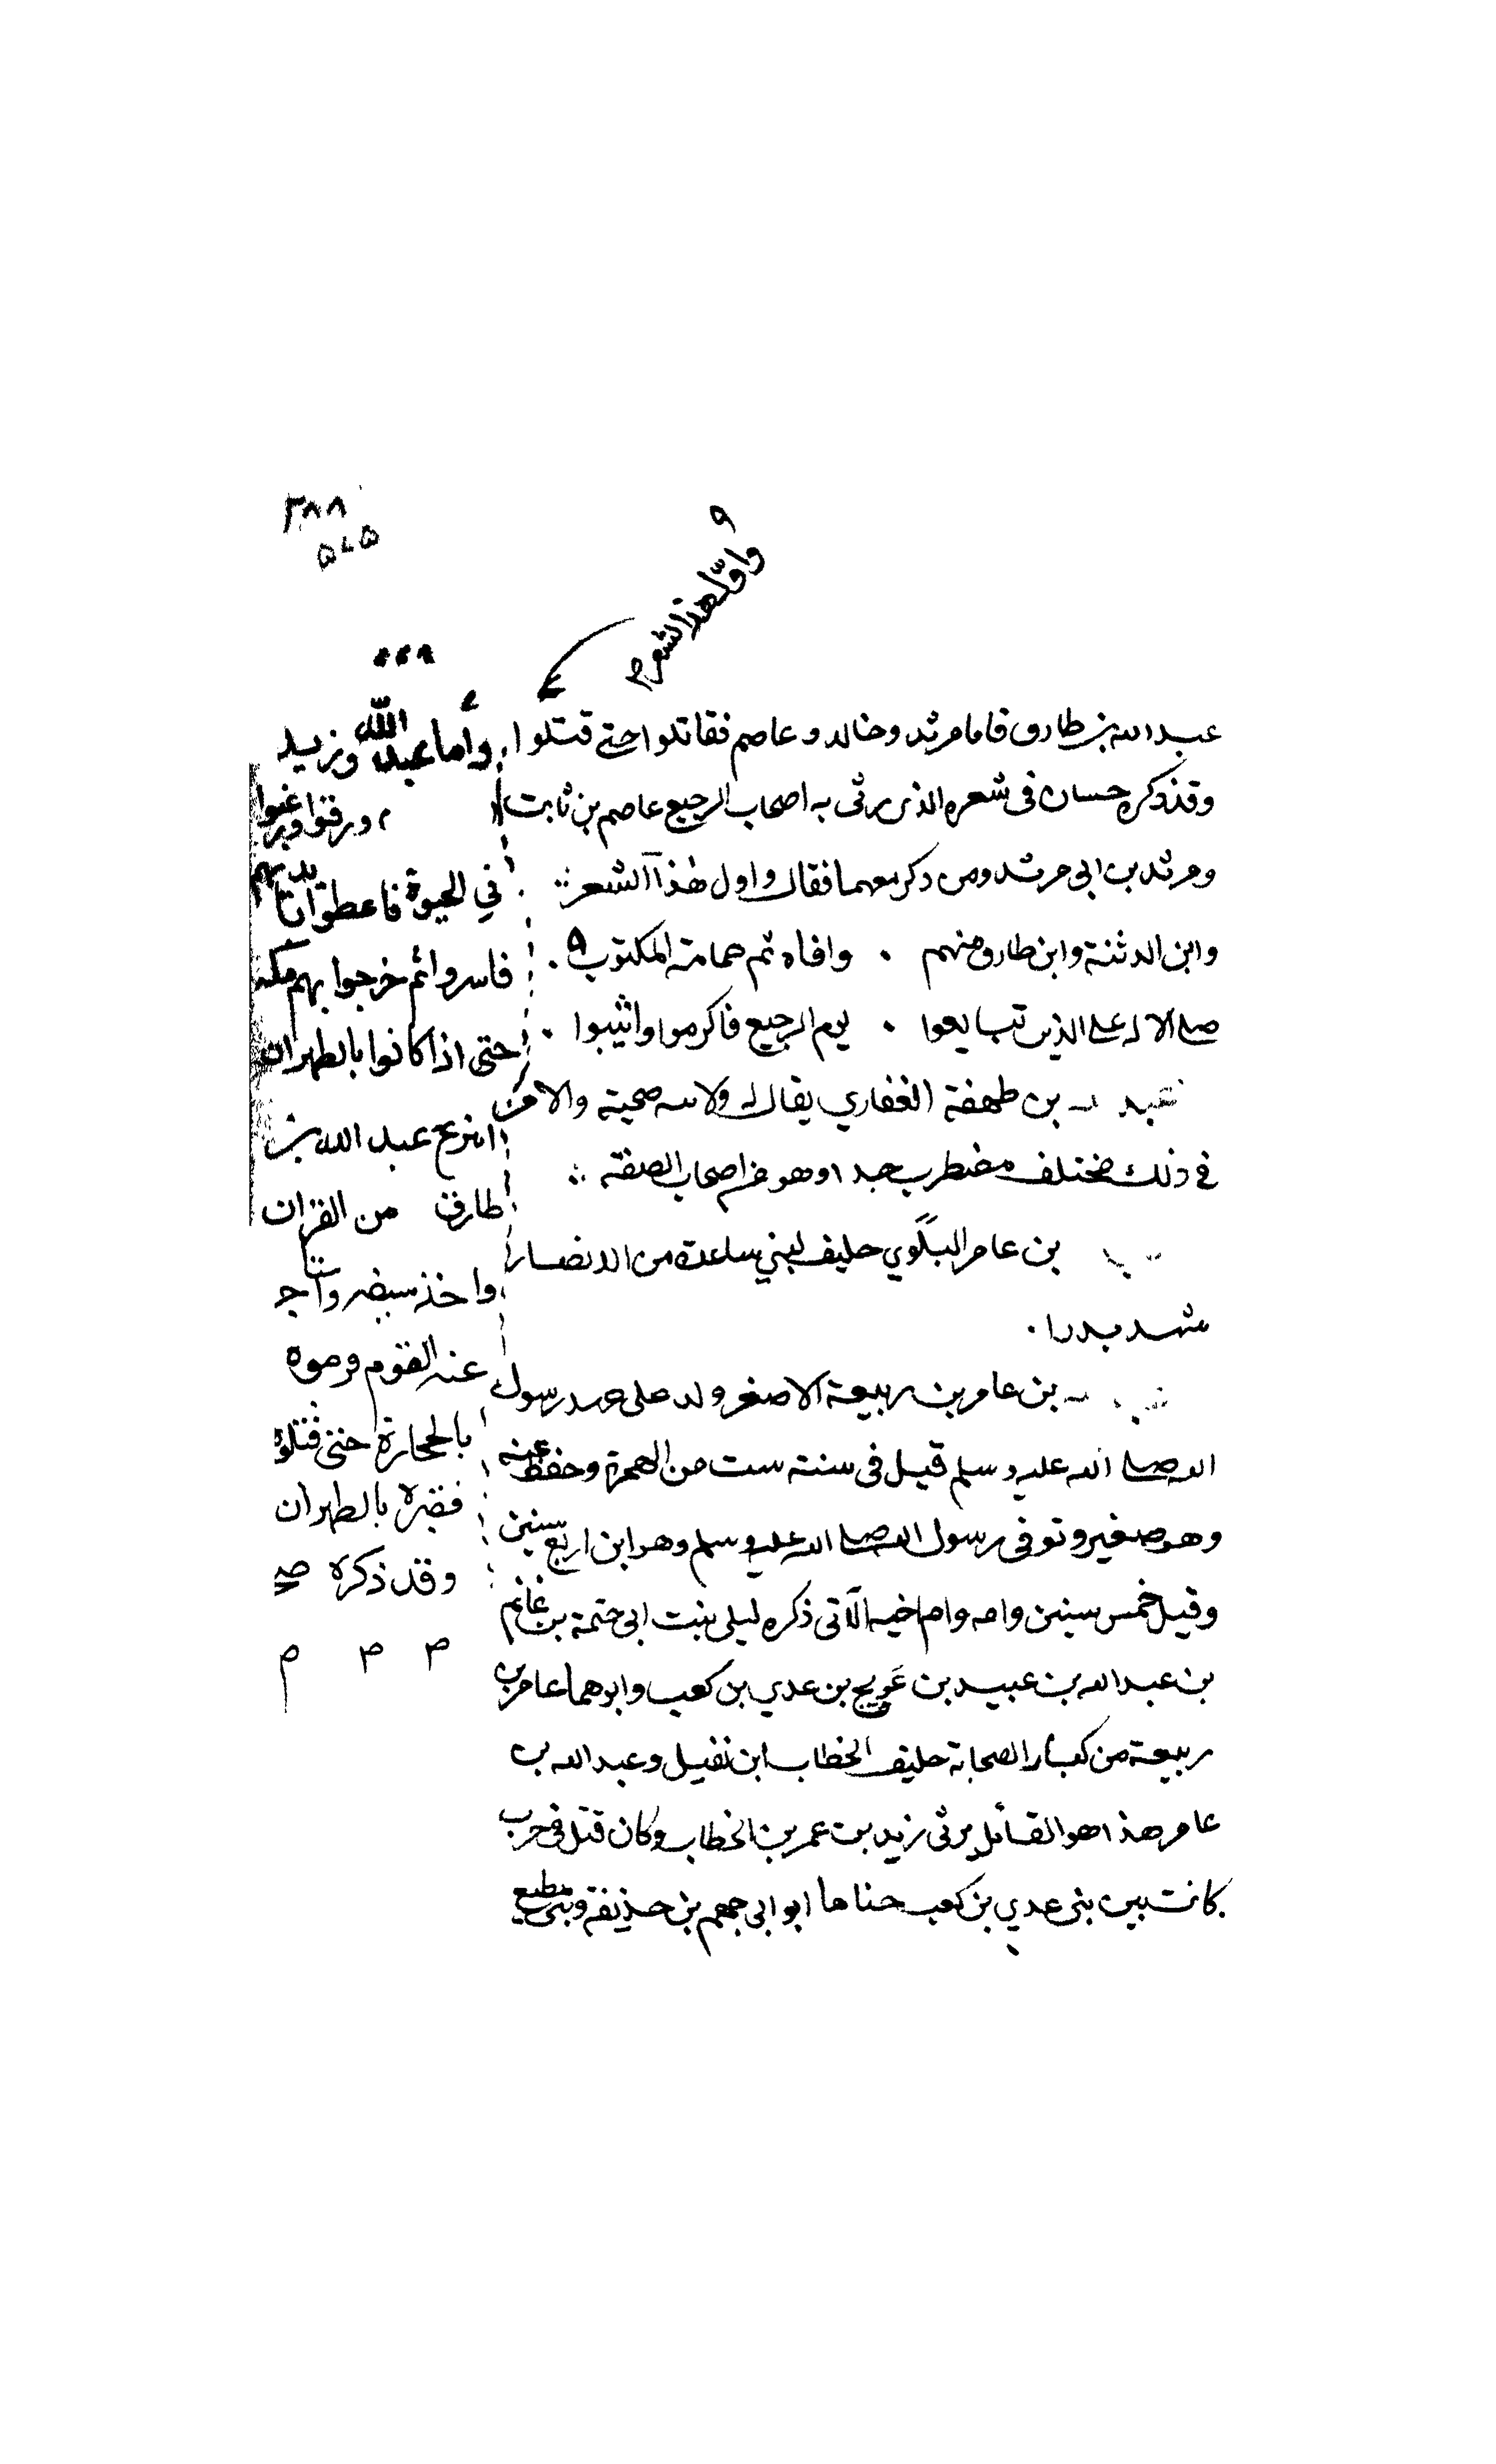 ٣٨٨
٥٧٥
واول هذا الشعر
عبد الله بن طارق فاما مرثد وخالد وعاصم فقاتلوا حتى قتلوا
وقد ذكره حسان في شعره الذي رثى به اصحاب الرجيع عاصم بن ثابت
ومرثد بن ابي مرثد ومن ذكر معهما فقال واول هذا الشعر
وابن الدثنة وابن طارق منهم . وافاه ثم حمامه المكتوب .
صلى الاله على الذين تبايعوا . يوم الرجيع فاكرموا واثيبوا .
بن طهفة الغفاري يقال له ولابيه صحبته والامر
في ذلك مختلف مضطرب جدا وهو من اصحاب الصفة
بن عامر البلوي حليف لبني ساعدة من الانصار
شهد بدرا .
بن عامر بن ربيعة الاصغر ولد على عهد رسول
الله صلى الله عليه وسلم قيل في سنة ست من الهجرة وحفظ عنه
وهو صغير وتوفي رسول الله صلى الله عليه وسلم وهو ابن اربع سنين
وقيل خمس سنين وامه وام اخيه الآتي ذكره ليلى بنت ابي حتمة بن غانم
بن عبد الله بن عبيد بن عويج بن عدي بن كعب وابوهما عامر بن
ربيعة من كبار الصحابة حليف الخطاب ابن نفيل وعبد الله بن
عامر هذا هو القائل يرثي زيد بن عمر بن الخطاب وكان قتل في حرب
كانت بين بني عدي بن كعب جناها ابو ابي جهم بن حذيفة وبني مطيع
وأما عبد الله وزيد
ورقوا ورغبوا
في الحيوة فاعطوا بايديهم
فاسروا ثم خرجوا بهم مكة
حتى اذا كانوا بالظهران
انتزع عبد الله بن
طارق من القران
واخذ سيفه
عنه القوم فرموه
بالحجارة حتى قتلوه
فقبره بالظهران
وقد ذكره